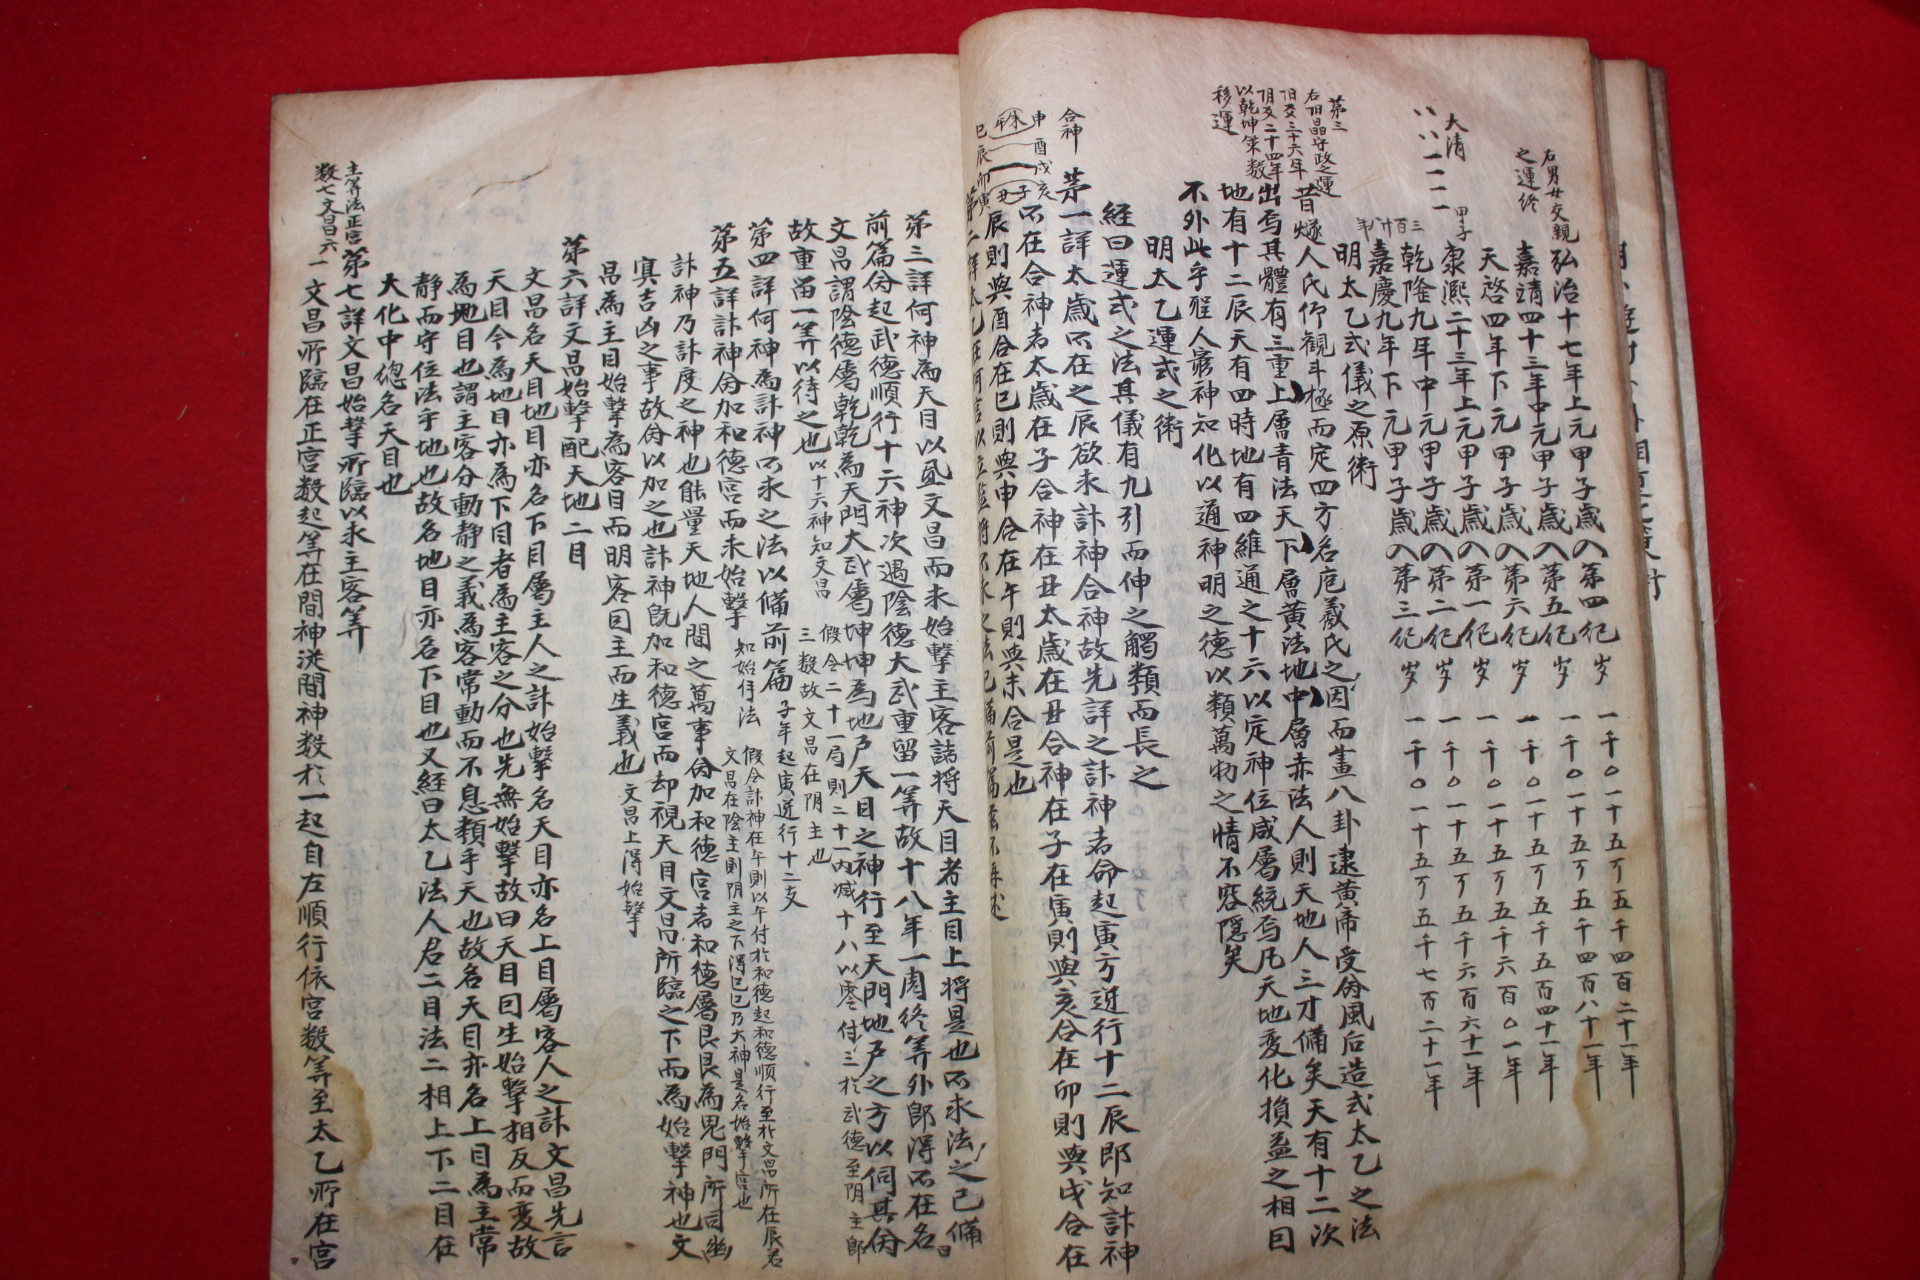 右男女交親
之運終
弘治十七年上元甲子歲入第四紀 岁 一千〇一十五万五千四百二十一年
嘉靖四十三年中元甲子歲入第五紀 岁 一千〇一十五万五千四百八十一年
天啓四年下元甲子歲入第六紀 岁 一千〇一十五万五千五百四十一年
大清
甲子
康熙二十三年上元甲子歲入第一紀 岁 一千〇一十五万五千六百〇一年
乾隆九年中元甲子歲入第二紀 岁 一千〇一十五万五千六百六十一年
嘉慶九年下元甲子歲入第三紀 岁 一千〇一十五万五千七百二十一年
明太乙式儀之原術
第三
昔燧人氏仰觀斗極而定四方名庖羲氏之因而畫八卦逮黄帝受俻風后造式太乙之法
出焉其體有三重上層青法天下層黄法地中層赤法人則天地人三才俻矣天有十二次
地有十二辰天有四時地有四維通之十六以定神位咸層統焉凡天地变化損益之相因
不外此乎聖人窮神知化以通神明之德以類萬物之情不容隱矣
以乾坤策数
移運
明太乙運式之術
經曰運式之法其儀有九引而伸之觸類而長之
合神
第一詳太歲所在之辰欲求計神合神故先詳之計神者命起寅方逆行十二辰即知計神
所在合神者太歲在子合神在丑太歲在丑合神在子在寅則與亥合在卯則與戌合在
辰則與酉合在巳則與申合在午則與未合是也
申酉戌亥
巳辰卯寅
第三詳何神為天目以爲文昌而求始擊主客諸將天目者主目上將是也所求法之已俻
前篇俻起武德順行十六神次遇陰德大武重留一筭故十八年一周终筭外郎得所在名曰
文昌謂陰德層乾乾為天門大武層坤坤為地户天目之神行至天門地户之方以伺其俻
故重留一筭以待之也 以十六神知文昌 假令二十一局則二十一内减十八以零付三於武德至阴主郎
三数故文昌在阴主也
第四詳何神為計神所求之法以俻前篇 子年起寅逆行十二支
第五詳計神俻加和德宫而求始擊 知始佇法 假令計神在午則以午付於和德起和德順行至於文昌所在辰名
文昌在陰主則阴主之下得巳巳乃大神是名始擊宫也
計神乃計度之神也能量天地人間之萬事俻加和德宫者和德層艮艮為鬼門所司幽
冥吉凶之事故俻以加之也計神旣加和德宫而却視天目文昌所臨之下而為始擊神也文
昌為主目始擊為客目而明客因主而生義也 文昌上得始擊
第六詳文昌始擊配天地二目
文昌名天目地目亦名下目層主人之計始擊名天目亦名上目層客人之計文昌先言
天目今為地目亦為下目者為主客之分也先無始擊故曰天目因生始擊相反而变故
為地目也謂主客分動静之義為客常動而不息類乎天也故名天目亦名上目為主常
静而守位法乎地也故名地目亦名下目也又經曰太乙法人君二目法二相上下二目在
大化中總名天目也
主筭法正宫
数七文昌六
第七詳文昌始擊所臨以求主客筭
一文昌所臨在正宫数起筭在間神従間神数於一起自左順行依宫数筭至太乙所在宫